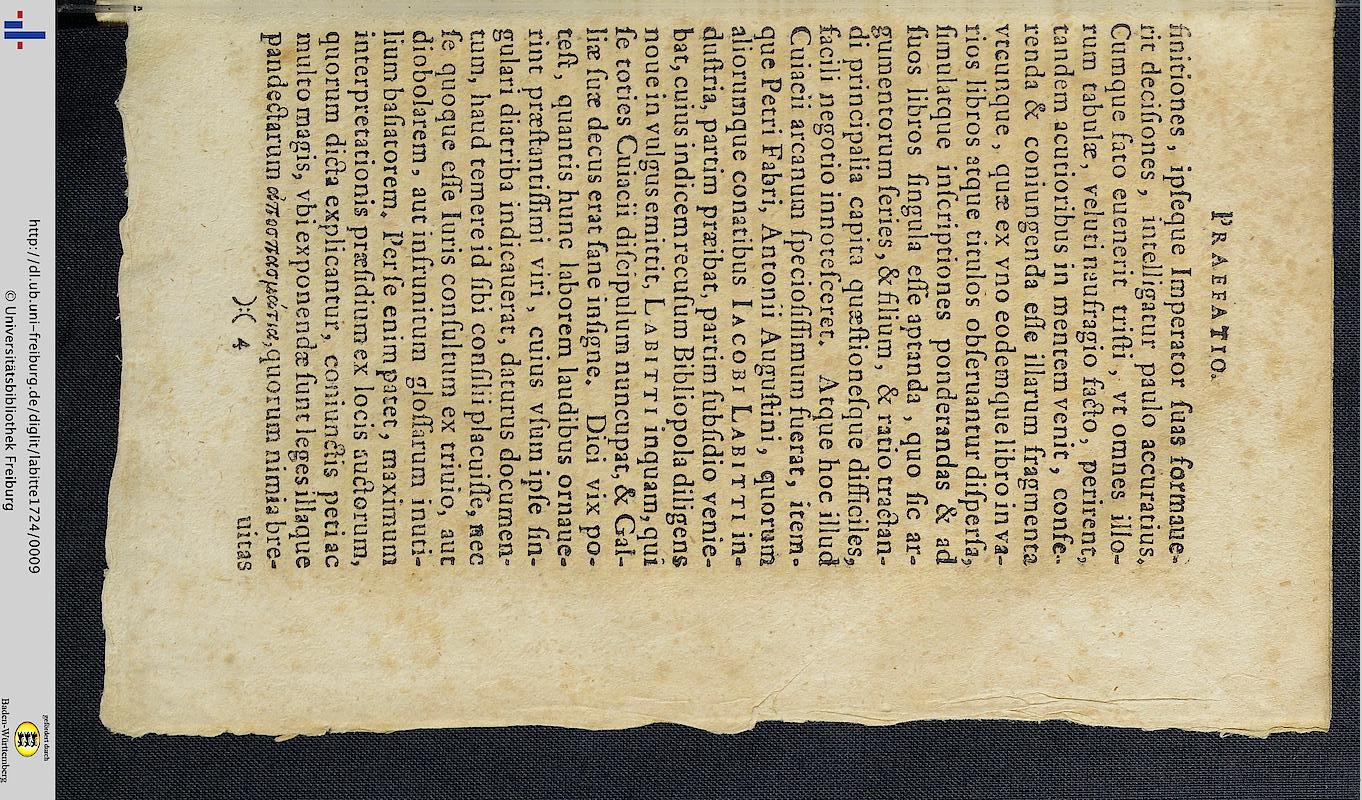 PRAEFATIO.
finitiones, ipſeque Imperator ſuas formaue-
rit deciſiones, intelligatur paulo accuratius.
Cumque fato euenerit triſti, vt omnes illo-
rum tabulæ, veluti naufragio facto, perirent,
tandem acutioribus in mentem venit, confe-
renda & coniungenda eſſe illarum fragmenta
vtcunque, quæ ex vno eodemque libro in va-
rios libros atque titulos obſeruantur diſperſa,
ſimulatque inſcriptiones ponderandas & ad
ſuos libros ſingula eſſe aptanda, quo ſic ar-
gumentorum ſeries, & filium, & ratio tractan-
di principalia capita quæſtioneſque difficiles,
facili negotio innoteſceret. Atque hoc illud
Cuiacii arcanum ſpecioſiſſimum fuerat, item-
que Petri Fabri, Antonii Auguſtini, quorum
aliorumque conatibus IACOBI LABITTI in-
duſtria, partim præibat, partim ſubſidio venie-
bat, cuius indicem recuſum Bibliopola diligens
noue in vulgus emittit, LABITTI inquam, qui
ſe toties Cuiacii diſcipulum nuncupat, & Gal-
liæ ſuæ decus erat ſane inſigne. Dici vix po-
teſt, quantis hunc laborem laudibus ornaue-
rint præſtantiſſimi viri, cuius vſum ipſe ſin-
gulari diatriba indicauerat, daturus documen-
tum, haud temere id ſibi conſilii placuiſſe, nec
ſe quoque eſſe Iuris conſultum ex triuio, aut
diobolarem, aut inſrunitum gloſſarum inuti-
lium baſiatorem. Per ſe enim patet, maximum
interpretationis præſidium ex locis auctorum,
quorum dicta explicantur, coniunctis peti ac
multo magis, vbi exponendæ ſunt leges illaque
pandectarum ἀποσπασμάτια, quorum nimia bre-
):( 4
uitas
http://dl.ub.uni-freiburg.de/diglit/labitte1724/0009
© Universitätsbibliothek Freiburg
gefördert durch
Baden-Württemberg